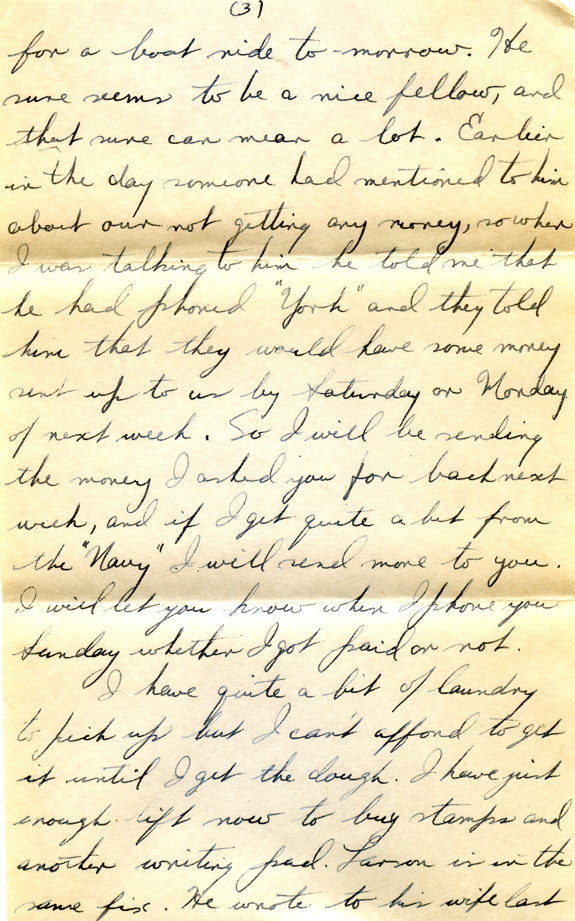 (3)
for a boat ride to-morrow. He
sure seems to be a nice fellow, and
that sure can mean a lot. Earlier
in the day someone had mentioned to him
about our not getting any money, so when
I was talking to him he told me that
he had phoned "York" and they told
him that they would have some money
sent up to us by Saturday or Monday
of next week. So I will be sending
the money I asked you for back next
week, and if I get quite a bit from
the "Navy" I will send more to you.
I will let you know when I phone you
Sunday whether I got paid or not.
I have quite a bit of laundry
to pick up but I can't afford to get
it until I get the dough. I have just
enough left now to buy stamps and
another writing pad. Larson is in the
same fix. He wrote to his wife last